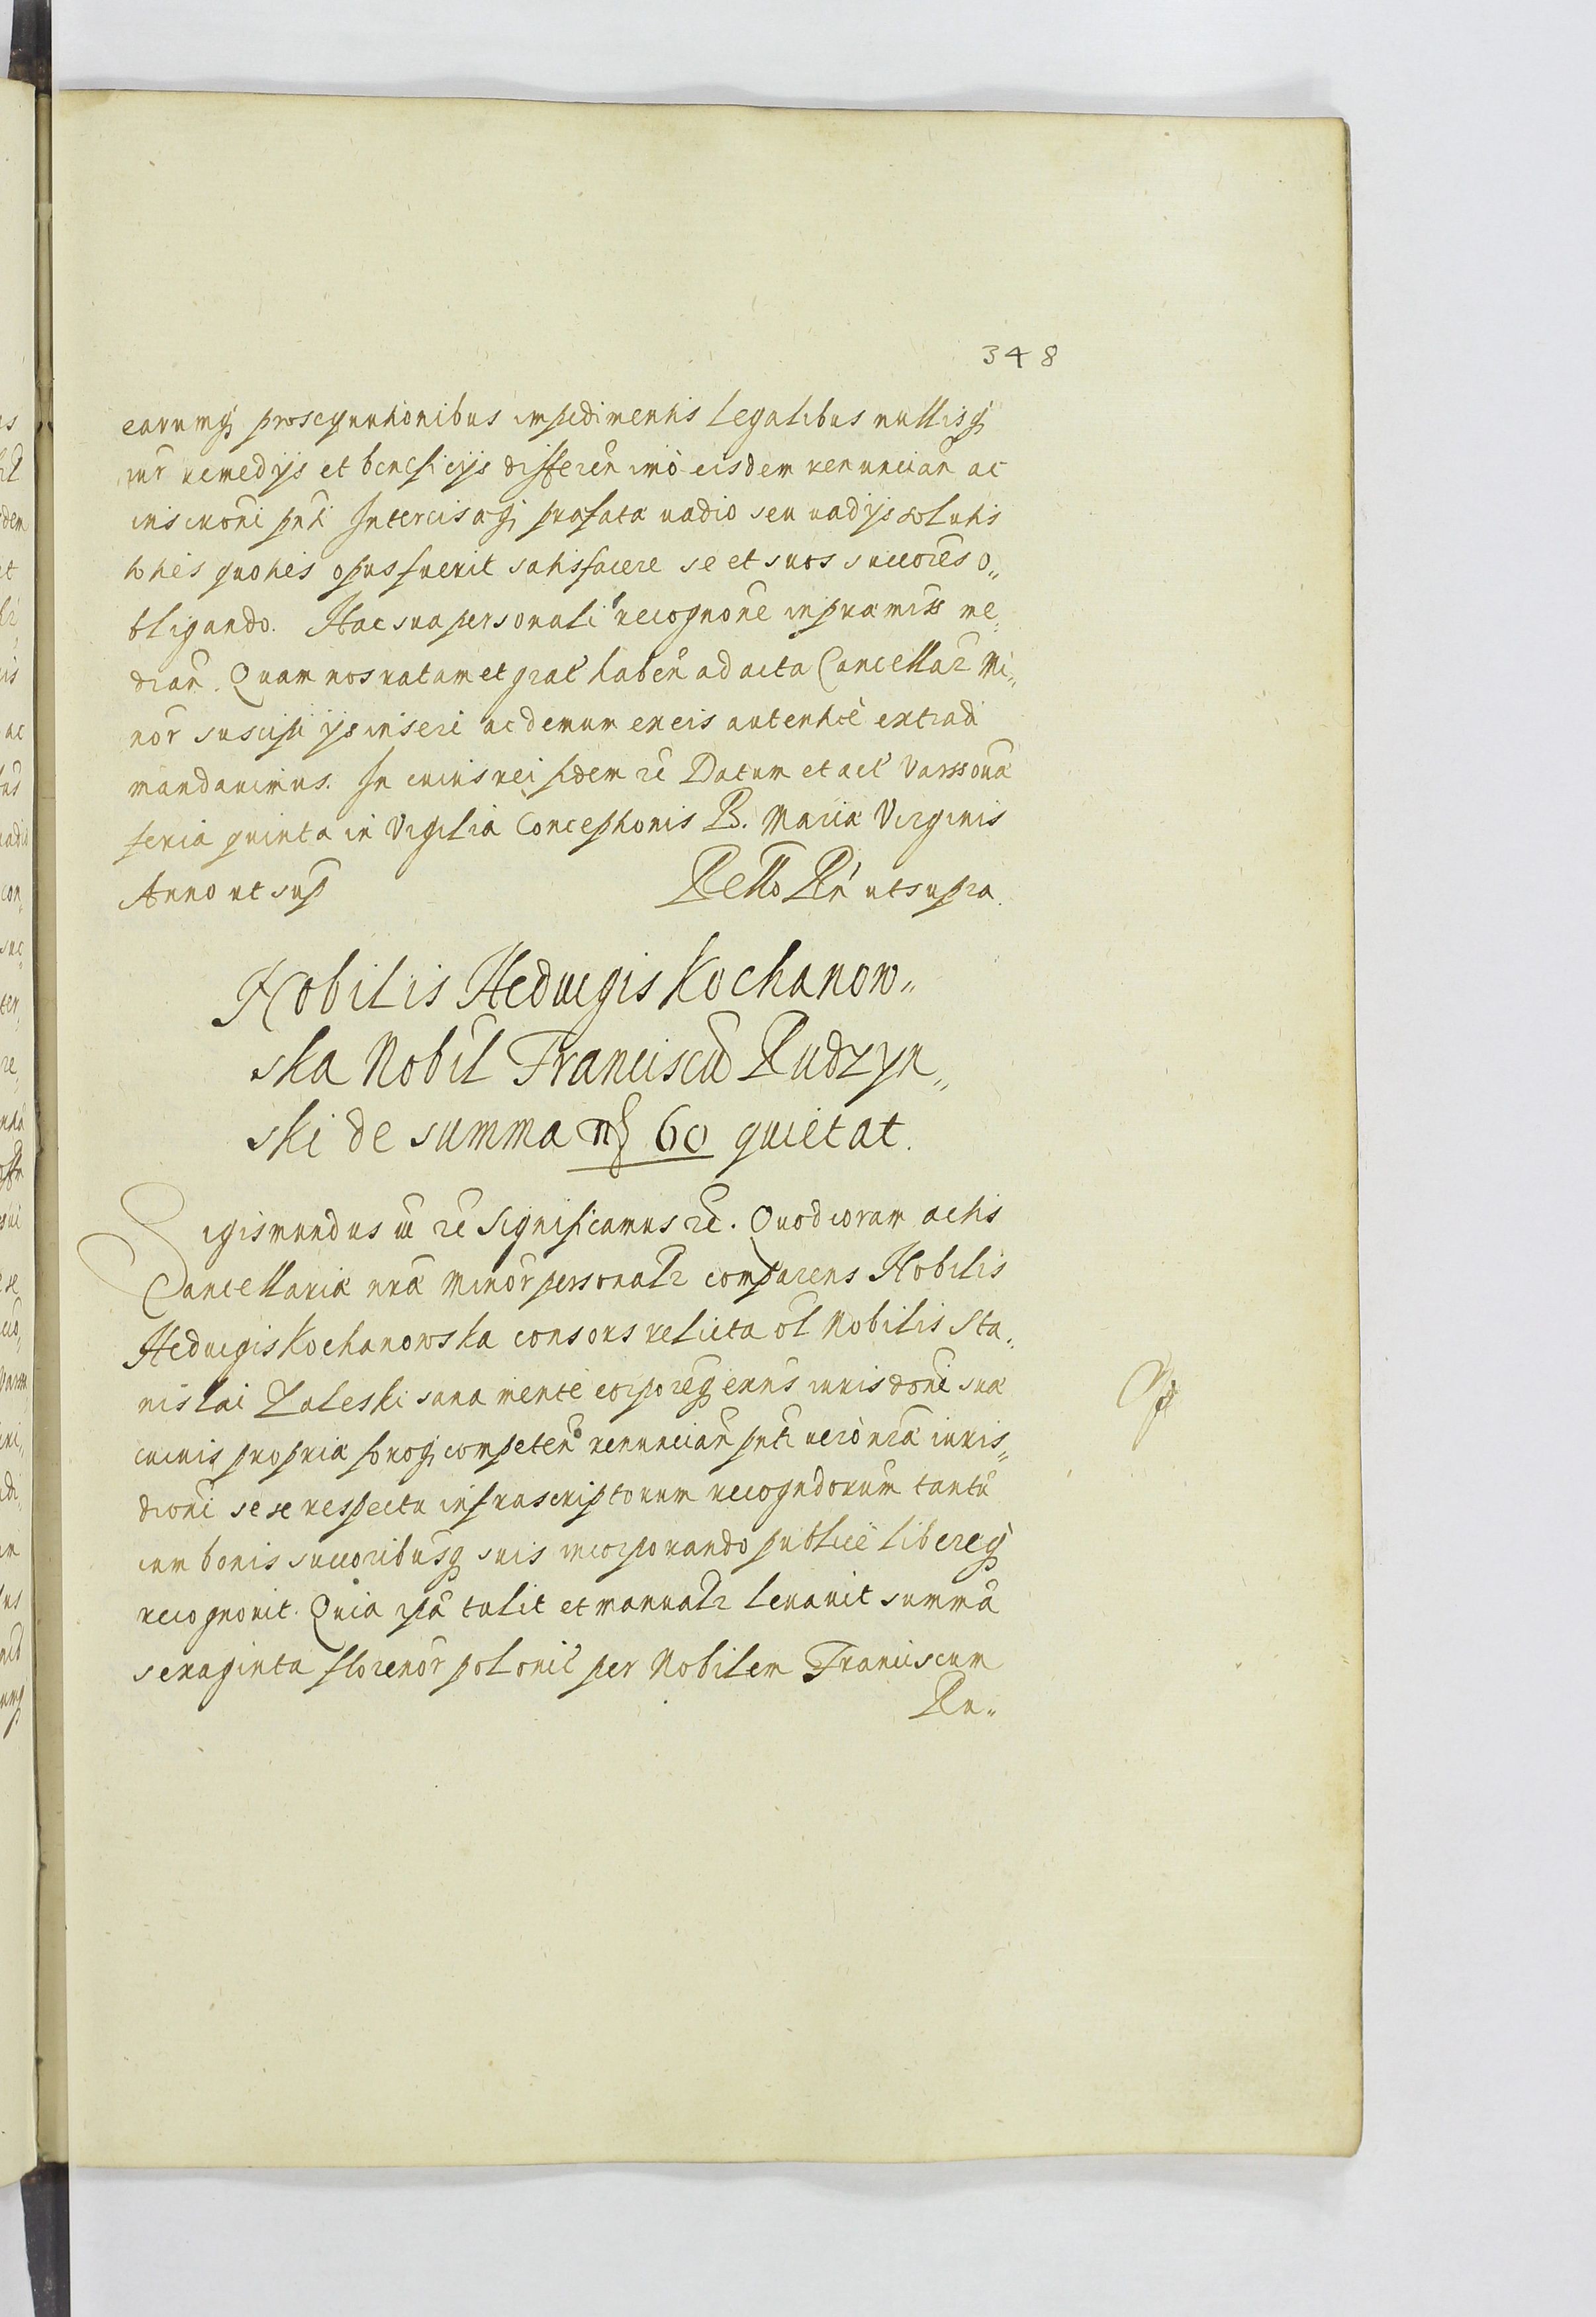 348
earumq₃ prosequutionibus impedimentis legalibus nullisq₃
iur̃ remedijs et beneficijs differeñ imò eisdem renunciañ ac
inscrōni pñti Intercisæq₃ præfatæ vadio seu vadijs solutis
toties quoties opus fuerit satisfacere se et suos succores o„
bligando. Hac sua personali recognōne in præmiss me„
diañ. Quam nos ratam et grat̃ habeñ ad acta Cancellar Mi„
nor̃ suscipi ijs inseri ac demum ex eis autenticè extradi
mandavimus. In cuius rei fidem rc̃ Datum et act̃ Varssoviæ
feria quinta in Vigilia Conceptionis B. Mariæ Virginis
Anno ut sup̃
Rello Rñ ut supra.
Nobilis Heduigis Kochanow„
ska Nobil̃ Franciscũ Rudzyn„
ski de summa fl 60 quietat.
Sigismundus iii rc̃ Significamus rc̃. Quod coram actis
Cancellariæ nr̃æ Minor̃ personalr comparens Nobilis
Heduigis Kochanowska consors relicta ol̃ Nobilis Sta„
nislai Zaleski sana mente corporeq₃ exñs iurisdōni suæ
cuiuis propriæ foroq₃ competeñ renunciañ pñti verò nr̃æ iuris„
dioni sese respectu infrascriptorum recogndorum tantũ
cum bonis succoribusq₃ suis incorporando publicè libereq₃
recognovit. Quia ipã tulit et manualr levavit summã
sexaginta florenor̃ polonic̃ per Nobilem Franciscum
Ru„